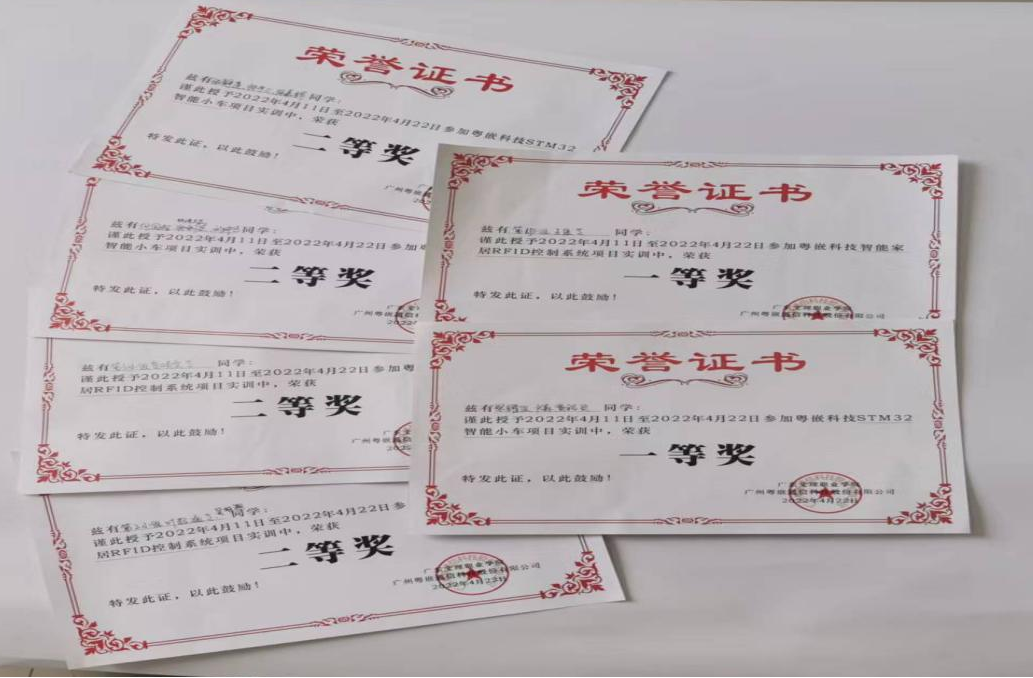 荣誉证书
兹有 同学：
谨此授予2022年4月11日至2022年4月22日参加粤嵌科技STM32
智能小车项目实训中，荣获
二等奖
特发此证，以此鼓励！
广州粤嵌
兹有 同学：
谨此授予2022年4月11日至2022年4月22日参加
智能小车项目实训中，荣获
二等奖
特发此证，以此鼓励！
广州粤嵌通信科
2022
兹有 同学：
谨此授予2022年4月11日至2022年4月22日参加粤
居RFID控制系统项目实训中，荣获
二等奖
特发此证，以此鼓励！
广州粤嵌
兹有 同学：
谨此授予2022年4月11日至2022年4月22日参
居RFID控制系统项目实训中，荣获
二等奖
特发此证，以此鼓励！
职业学院
广州粤嵌通信科技股份有限公司
2022年4月22日
荣誉证书
兹有 同学：
谨此授予2022年4月11日至2022年4月22日参加粤嵌科技智能家
居RFID控制系统项目实训中，荣获
一等奖
特发此证，以此鼓励！
职业学院
广州粤嵌通信科技股份有限公司
荣誉证书
兹有 同学：
谨此授予2022年4月11日至2022年4月22日参加粤嵌科技STM32
智能小车项目实训中，荣获
一等奖
特发此证，以此鼓励！
职业学院
广州粤嵌通信科技股份有限公司
2022年4月22日